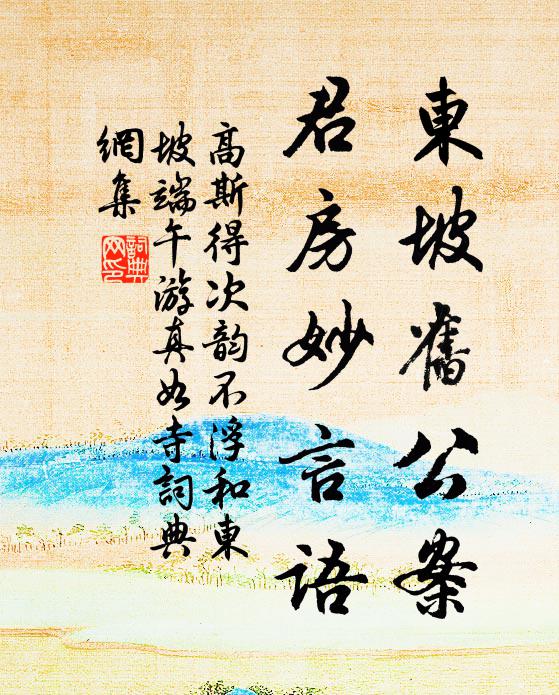 東坡舊公案
君房妙言語
高斯得次韵不浮和東
坡端午游真如寺詞典
網集
詞典
网印